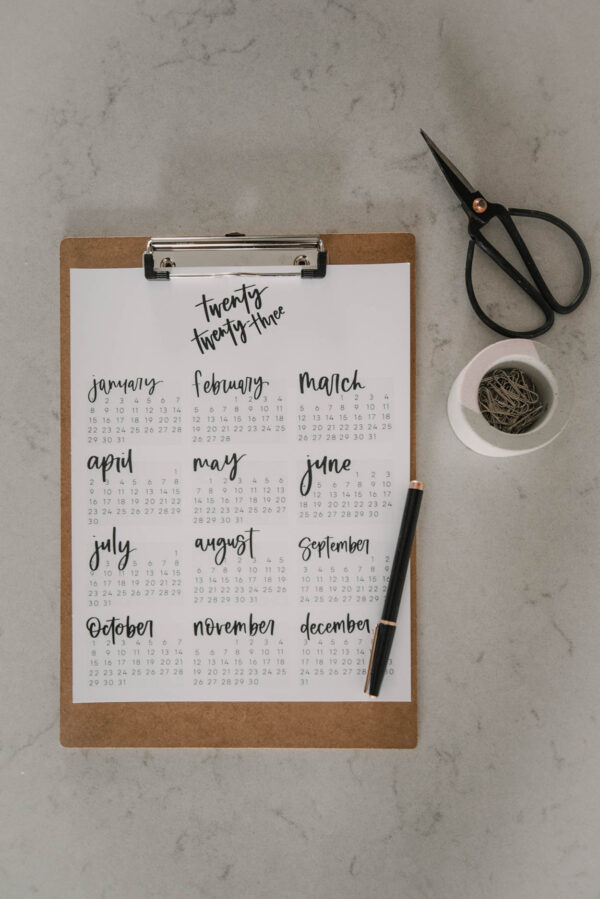 twenty
twenty-three
january
2 3 4 5 6 7
8 9 10 11 12 13 14
15 16 17 18 19 20 21
22 23 24 25 26 27 28
29 30 31
february
1 2 3 4
5 6 7 8 9 10 11
12 13 14 15 16 17 18
19 20 21 22 23 24 25
26 27 28
march
1 2 3 4
5 6 7 8 9 10 11
12 13 14 15 16 17 18
19 20 21 22 23 24 25
26 27 28 29 30 31
april
1
2 3 4 5 6 7 8
9 10 11 12 13 14 15
16 17 18 19 20 21 22
23 24 25 26 27 28 29
30
may
1 2 3 4 5 6
7 8 9 10 11 12 13
14 15 16 17 18 19 20
21 22 23 24 25 26 27
28 29 30 31
june
1 2 3
5 6 7 8 9 10
11 12 13 14 15 16 17
18 19 20 21 22 23 24
25 26 27 28 29 30
july
1
3 4 5 6 7 8
9 10 11 12 13 14 15
16 17 18 19 20 21 22
23 24 25 26 27 28 29
30 31
august
1 2 3 4 5
6 7 8 9 10 11 12
13 14 15 16 17 18 19
20 21 22 23 24 25 26
27 28 29 30 31
September
1 2
3 4 5 6 7 8
10 11 12 13 14 15
17 18 19 20 21 22
24 25 26 27 28 29
October
1 2 3 4 5 6 7
8 9 10 11 12 13 14
15 16 17 18 19 20 21
22 23 24 25 26 27 28
29 30 31
november
1 2 3 4
5 6 7 8 9 10 11
12 13 14 15 16 17 18
19 20 21 22 23 24 25
26 27 28 29 30
december
3 4 5 6 7 9
10 11 12 13 14 16
17 18 19 20 21 23
24 25 26 27 28 30
31